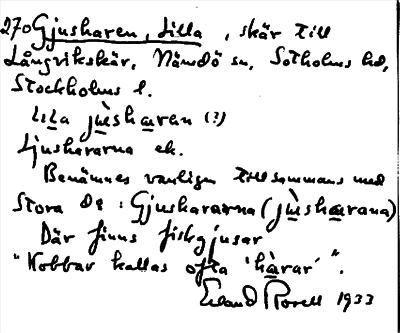 270 Gjusharen, Lilla, skär till
Långvikskär, Nämdö sn, Sotholms hd,
Stockholms l.
Lilla jùsharen (?)
Ljushararna ek.
Benämnes vanligen tillsammans med
Stora D:o : Gjushararna (jùsharana)
Där finns fiskgjusar
"Kobbar kallas ofta 'hàrar'".
Erland Rosell 1933